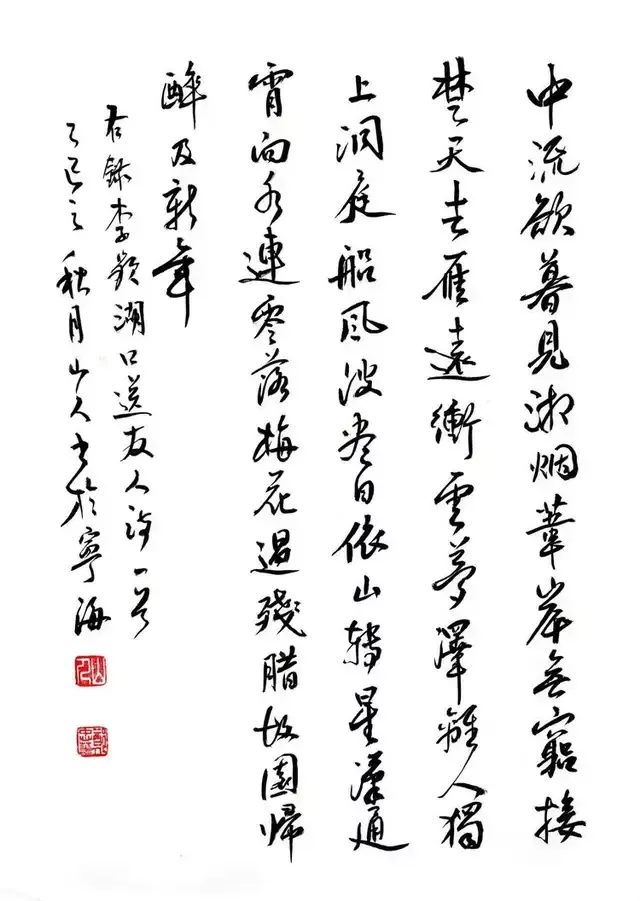 中流欲暮見湘烟葦岸無窮接
楚天去雁遠衝雲夢澤離人獨
上洞庭船風波盡日依山轉星漢通
霄向水連零落梅花過殘腊故園歸
醉及新年
右錄李頻湖口送友人詩一首
乙巳之秋月山人書於寧海
山人